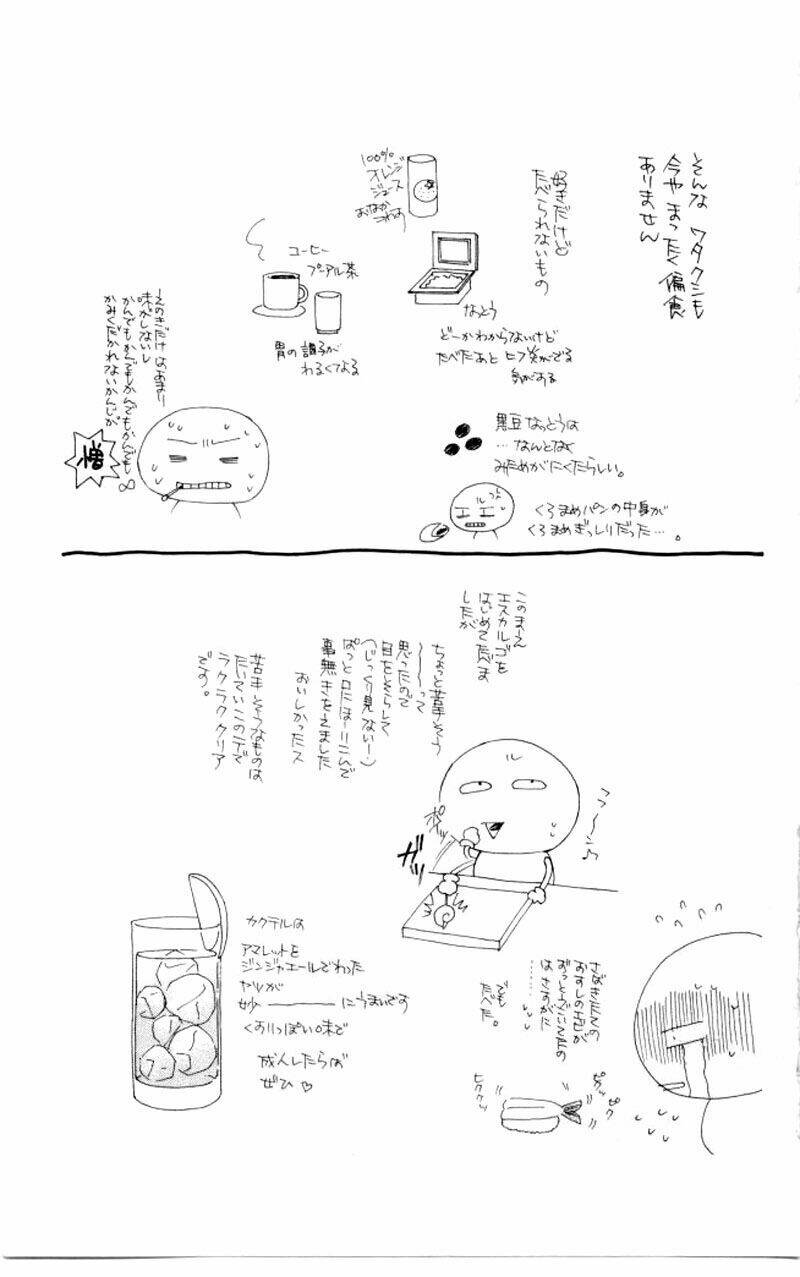 そんな ワタクシも
今や まったく偏食
ありません
好きだけど
たべられないもの
100%
オレンジ
ジュース
おなか
こわす
なっとう
どーかわからないけど
たべたあと ヒフ炎がでる
気がある
コーヒー
プーアル茶
胃の調子が
わるくてよる
黒豆なっとうは
…なんとなく
みためがにくたらしい。
くろまめパンの中身が
くろまめぎっしりだった…。
えのきだけ はあまりー
味がしないし
かんでもかんでもかんでもかんでも∞
かみくだかれないかんじが
憎
このまーえ
エスカルゴを
はじめてたべま
したが
ちょっと苦手そう
〜〜〜って
思ったので
目をそらして
(じっくり見ないー)
ぱっと口にほーりこんで
事無きをえました
おいしかったス
苦手そうなものは
たいていこのテで
ラクラククリア
です。
フフ〜〜ン♪
ポイッ
ガッ
カクテルは
アマレットを
ジンジャエールでわった
ヤツが
妙―――にうまいです
くすりっぽい味で
成人したらば
ぜひ♡
さばきたての
おすしのエビが
おっとうごいてたの
はさすがに
………
でも
たべた。
ピクッ
ピク
ヒククッ